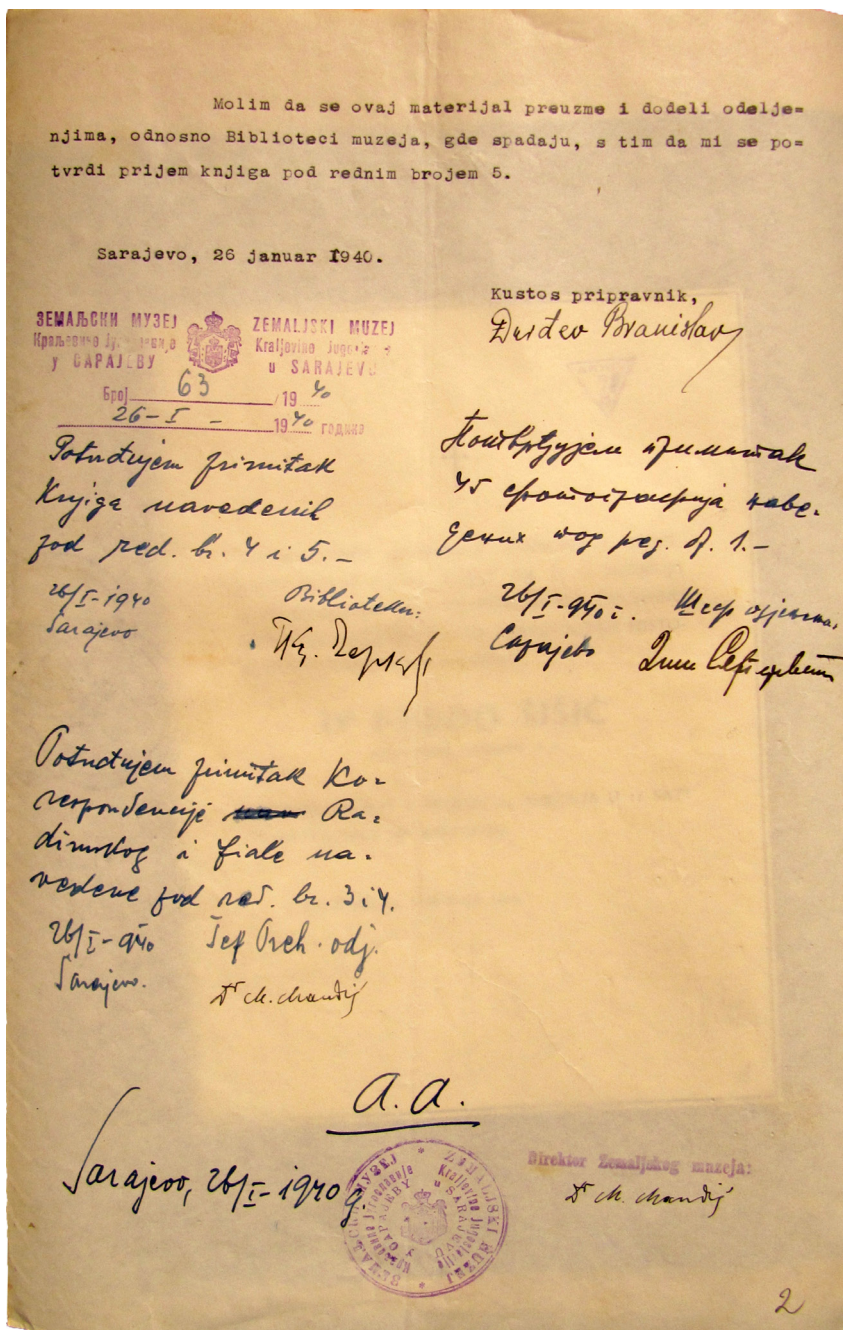 Molim da se ovaj materijal preuzme i dodeli odelje=
njima, odnosno Biblioteci muzeja, gde spadaju, s tim da mi se po=
tvrdi prijem knjiga pod rednim brojem 5.
Sarajevo, 26 januar 1940.
Kustos pripravnik,
Đurđev Branislav
ЗЕМАЉСКИ МУЗЕЈ
Краљевине Југославије
у САРАЈЕВУ
ZEMALJSKI MUZEJ
Kraljevine Jugoslavije
u SARAJEVU
Број 63 19 40
26-I- 1940 година
Potvrđujem primitak
Knjiga navedenih
pod red. br. 4 i 5.-
26/I-1940
Bibliotekar:
Sarajevo
Потврђујем примитак
45 фотографија наве-
дених под ред. б. 1.-
26/I-940 г. Шеф одјељења,
Сарајево
Potvrđujem primitak Ko-
respondencije Ra-
dimskog i Fiale na-
vedene pod red. br. 3 i 4.
26/I-940 Šef Arh. odj.
Sarajevo.
Dr M. Mandić
a.a.
Sarajevo, 26/I-1940 g.
ЗЕМАЉСКИ МУЗЕЈ * ZEMALJSKI MUZEJ *
Краљевине Југославије
у САРАЈЕВУ
Kraljevine Jugoslavije
u SARAJEVU
Direktor Zemaljskog muzeja:
Dr M. Mandić
2